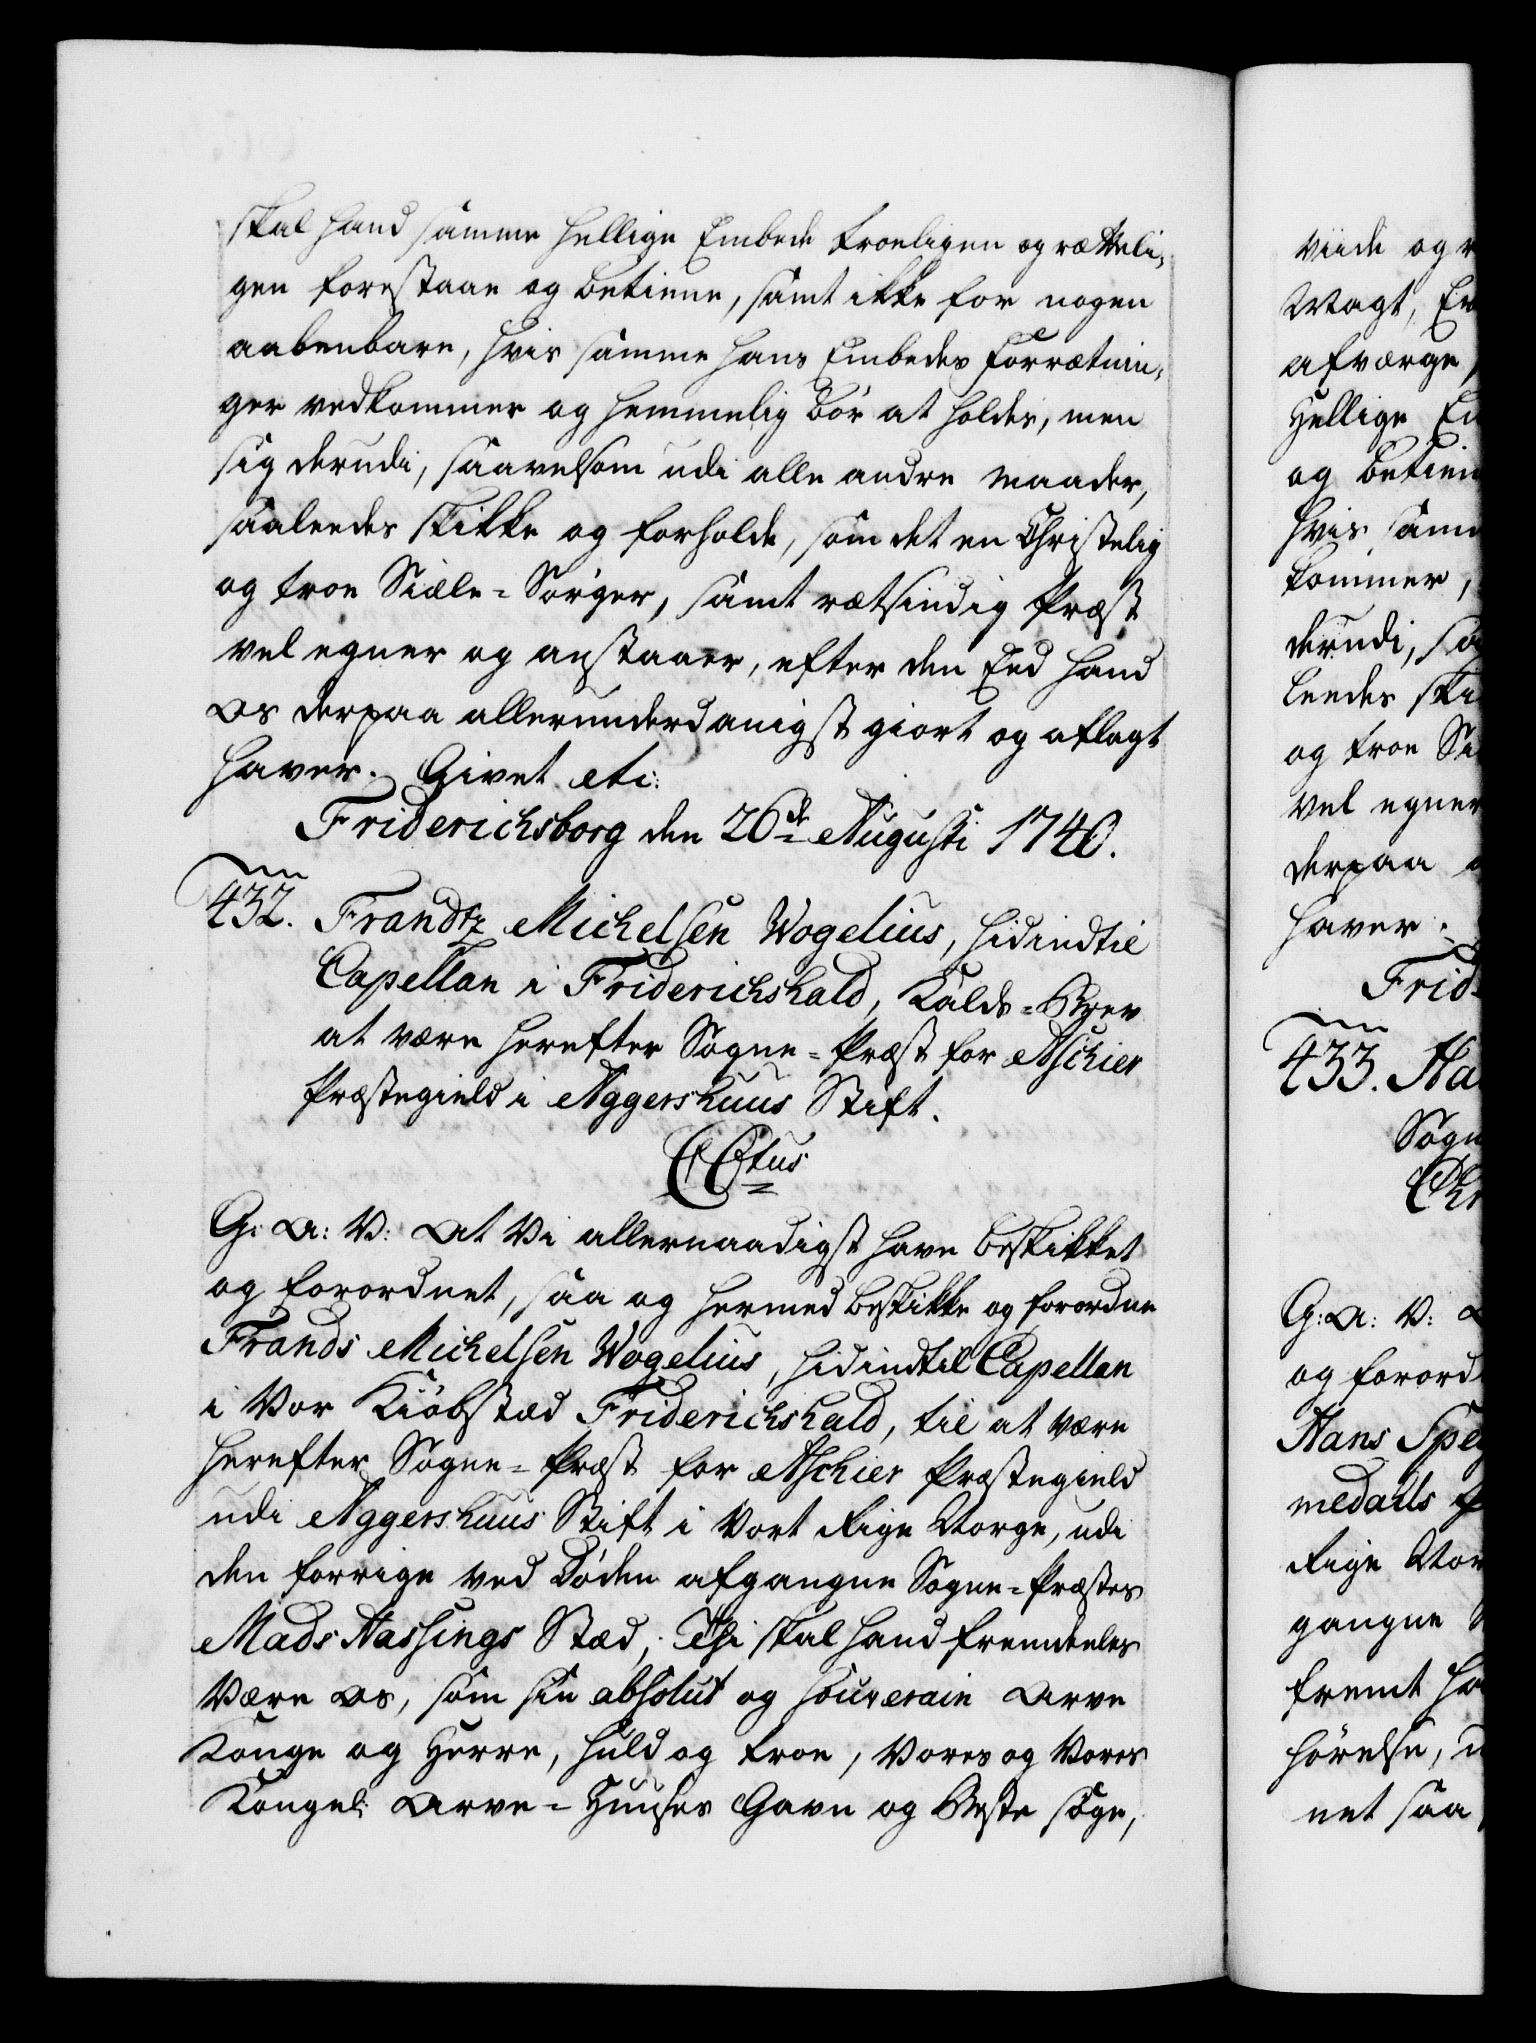 skal hand samme hellige Embede troeligen og rætteli-
gen forestaae og betiene, samt ikke for nogen
aabenbare, hvis samme hans Embedes Forrætnin-
ger vedkommer og hemmelig bör at holdes, men
sig derudi, saavelsom udi alle andre maader,
saaleedes skikke og forholde, som det en Christelig
og troe Siæle-Sörger, samt rætsindig Præst
vel egner og anstaaer, efter den Eed hand
Os derpaa allerunderdanigst giort og aflagt
haver. Givet etc:
Friderichsborg den 26de Augusti 1740.
432. Frandtz Michelsen Wogelius, hidindtil
Capellan i Friderichshald, Kalds-Brev
at være herefter Sogne-Præst for Aschier
Præstegield i Aggershuus Stift.
CCtus
G: A: V: At Vi allernaadigst have beskikket
og forordnet, saa og hermed beskikke og forordne
Frands Michelsen Wogelius, hidindtil Capellan
i Vor Kiöbstæd Friderichshald, til at være
herefter Sogne-Præst for Aschier Præstegield
udi Aggershuus Stift i Vort Rige Norge, udi
den forrige ved Döden afgangne Sogne-Præstes
Mads Hassings Stæd; Thi skal hand fremdeeles
være Os, som sin absolut og souverain Arve
Konge og Herre, huld og troe, Vores og Vores
Kongel: Arve-Huuses Gavn og Beste söge,
viide og r
Magt, Ev
afværge
Hellige Em
og betien
hvis sam
kommer,
derudi, sa
leedes ski
og troe Si
vel egner
derpaa
haver.
Frid
433. Ha
Sogn
Chr
G: A: V:
og forord
Hans Spe
medalls
Rige Nor
gangne
fremt ha
hörelse,
net saa